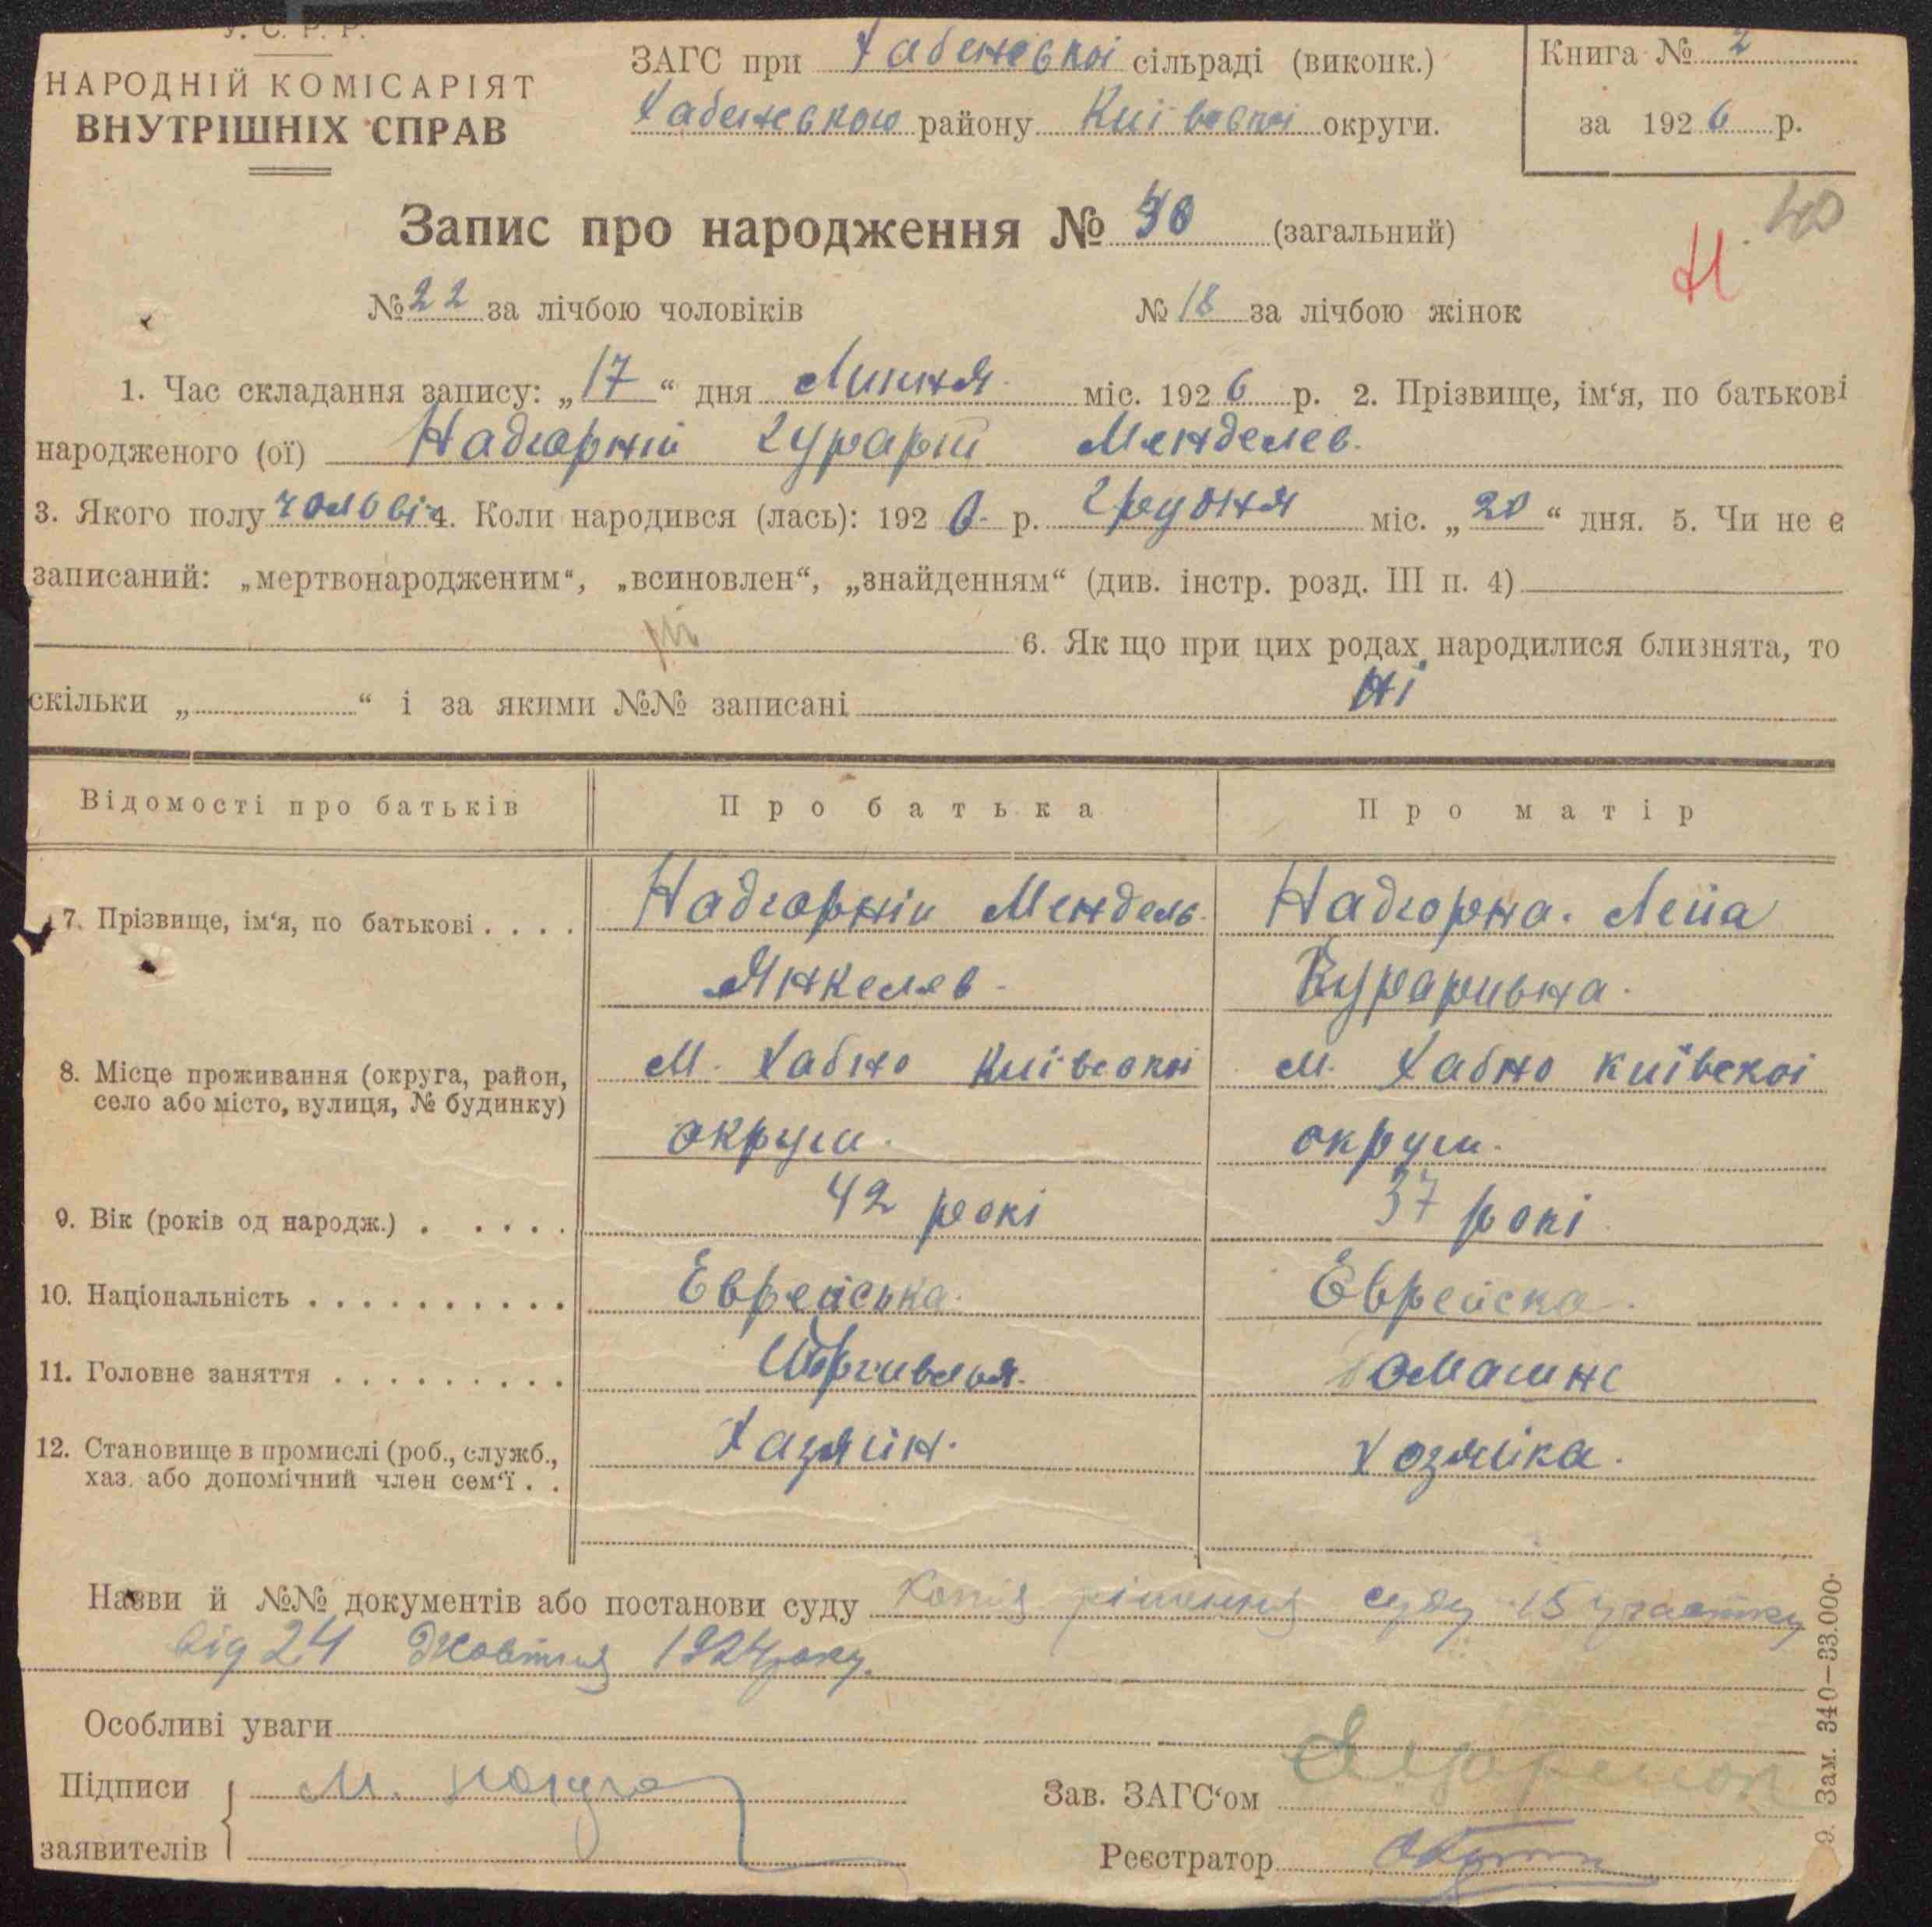 У. С. Р. Р.
НАРОДНІЙ КОМІСАРІЯТ
ВНУТРІШНІХ СПРАВ
ЗАГС при Хабенської сільраді (виконк.)
Хабенського району Київської округи.
Книга № 2
за 1926 р.
Запис про народження № 40 (загальний)
40
Н
№ 22 за лічбою чоловіків № 18 за лічбою жінок
1. Час складання запису: „17“ дня Липня міс. 1926 р. 2. Прізвище, ім‘я, по батькові
народженого (ої) Надгорній Менделев.
3. Якого полу чоловіч 4. Коли народився (лась): 192 р. Грудня міс. „20“ дня. 5. Чи не є
записаний: „мертвонародженим“, „всиновлен“, „знайденням“ (див. інстр. розд. III п. 4)
6. Як що при цих родах народилися близнята, то
скільки „ “ і за якими №№ записані ні
Відомості про батьків Про батька Про матір
7. Прізвище, ім‘я, по батькові . . . . Надгорній Мендель Надгорна. Лейа
Янкелев
8. Місце проживання (округа, район,
село або місто, вулиця, № будинку)
М. Хабно Київскої м. Хабно Київскої
округи. округи.
9. Вік (років од народж.) . . . . . 42 рокі 37 рокі
10. Національність . . . . . . . . . . . Еврейська Еврейска
11. Головне заняття . . . . . . . . . Торгивля
12. Становище в промислі (роб., служб.,
хаз. або допомічний член сем‘ї . .
Хазяїн. Хозяйка.
Назви й №№ документів або постанови суду Копія рішення суду 15 участку
від 24 Жовтня 1924 року.
Особливі уваги
Підписи
заявителів
Зав. ЗАГС‘ом
Реєстратор
9. Зам. 340—33.000.